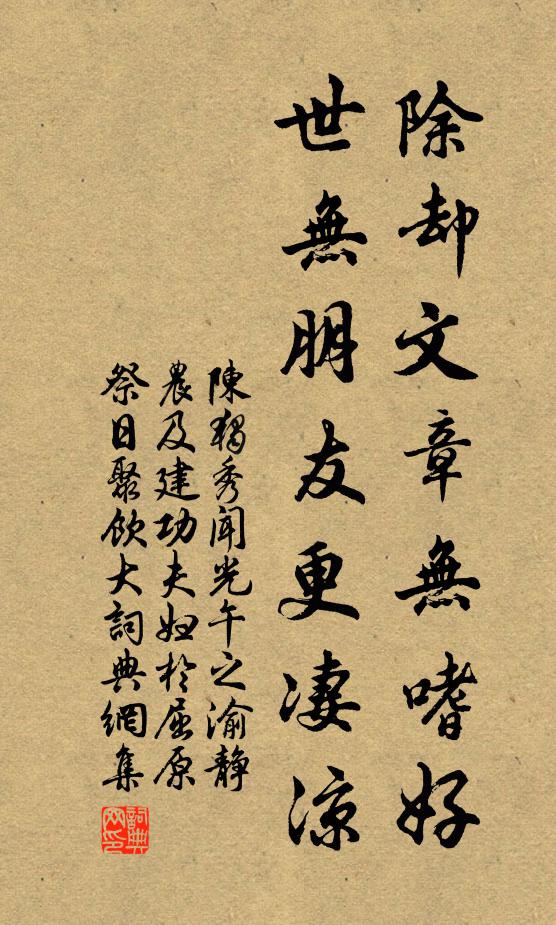 除却文章無嗜好
世無朋友更凄涼
陳獨秀聞光午之渝靜
農及建功夫婦於屈原
祭日聚飲大詞典網集
詞典
网印